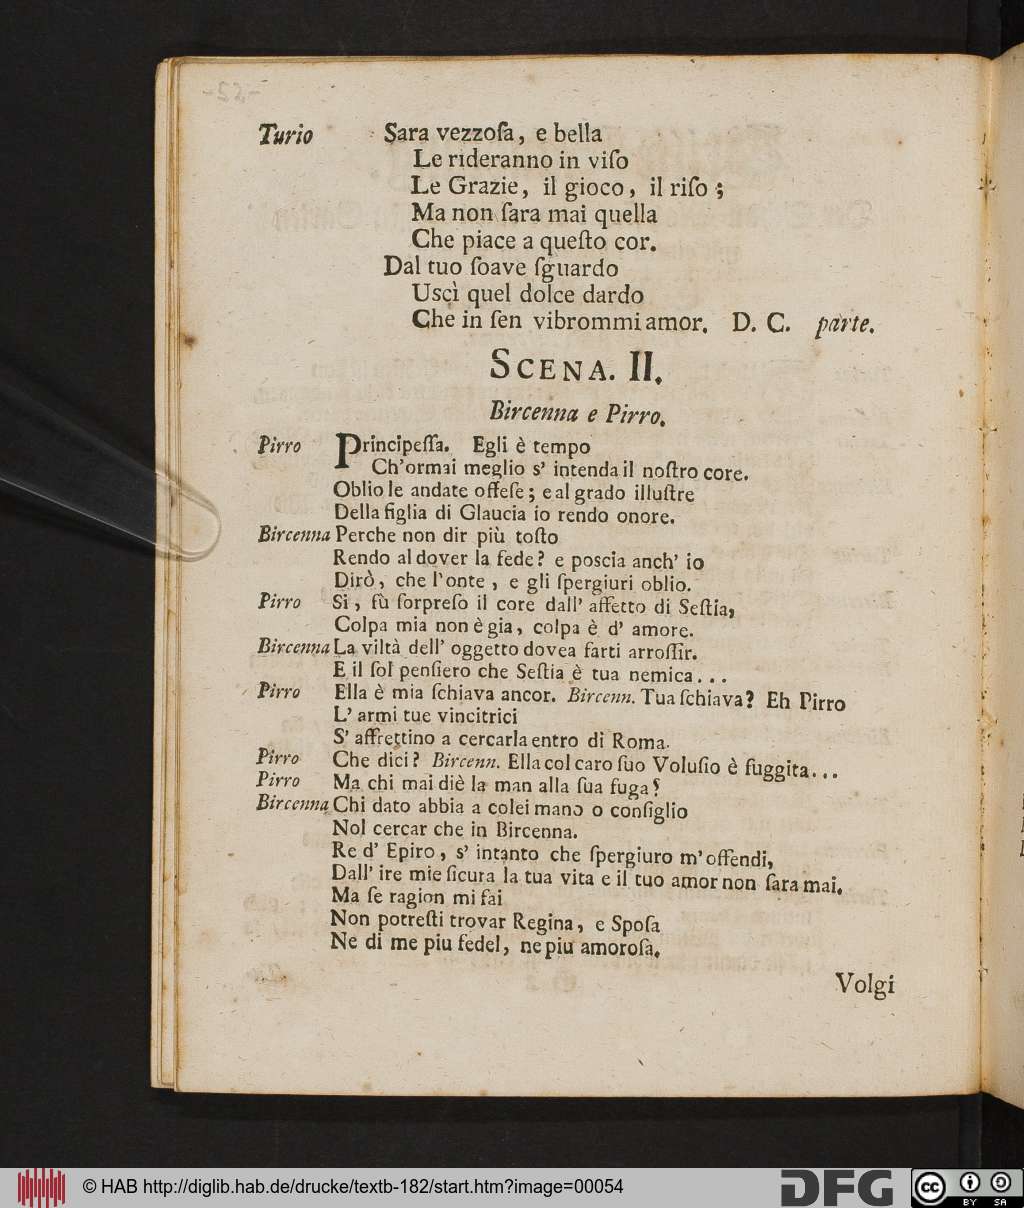 -52-
Turio Sara vezzoſa, e bella
Le rideranno in viſo
Le Grazie, il gioco, il riſo;
Ma non ſara mai quella
Che piace a queſto cor.
Dal tuo ſoave ſguardo
Uscì quel dolce dardo
Che in ſen vibrommi amor. D. C. parte.
SCENA. II.
Bircenna e Pirro.
Pirro Principeſſa. Egli è tempo
Ch'ormai meglio s' intenda il noſtro core.
Oblio le andate offeſe; e al grado illuſtre
Della figlia di Glaucia io rendo onore.
Bircenna Perche non dir più toſto
Rendo al dover la fede? e poscia anch' io
Dirò, che l'onte, e gli ſpergiuri oblio.
Pirro Si, fù ſorpreſo il core dall' affetto di Seſtia,
Colpa mia non è gia, colpa è d' amore.
Bircenna La viltà dell' oggetto dovea farti arroſſir.
E il ſol penſiero che Seſtia è tua nemica...
Pirro Ella è mia ſchiava ancor. Bircenn. Tua ſchiava? Eh Pirro
L' armi tue vincitrici
S' affrettino a cercarla entro di Roma.
Pirro Che dici? Bircenn. Ella col caro ſuo Voluſio è fuggita...
Pirro Ma chi mai diè la man alla ſua fuga?
Bircenna Chi dato abbia a colei mano o conſiglio
Nol cercar che in Bircenna.
Re d' Epiro, s' intanto che ſpergiuro m'offendi,
Dall' ire mie ſicura la tua vita e il tuo amor non ſara mai.
Ma ſe ragion mi fai
Non potreſti trovar Regina, e Spoſa
Ne di me piu fedel, ne piu amoroſa.
Volgi
© HAB http://diglib.hab.de/drucke/textb-182/start.htm?image=00054
DFG
cc BY SA